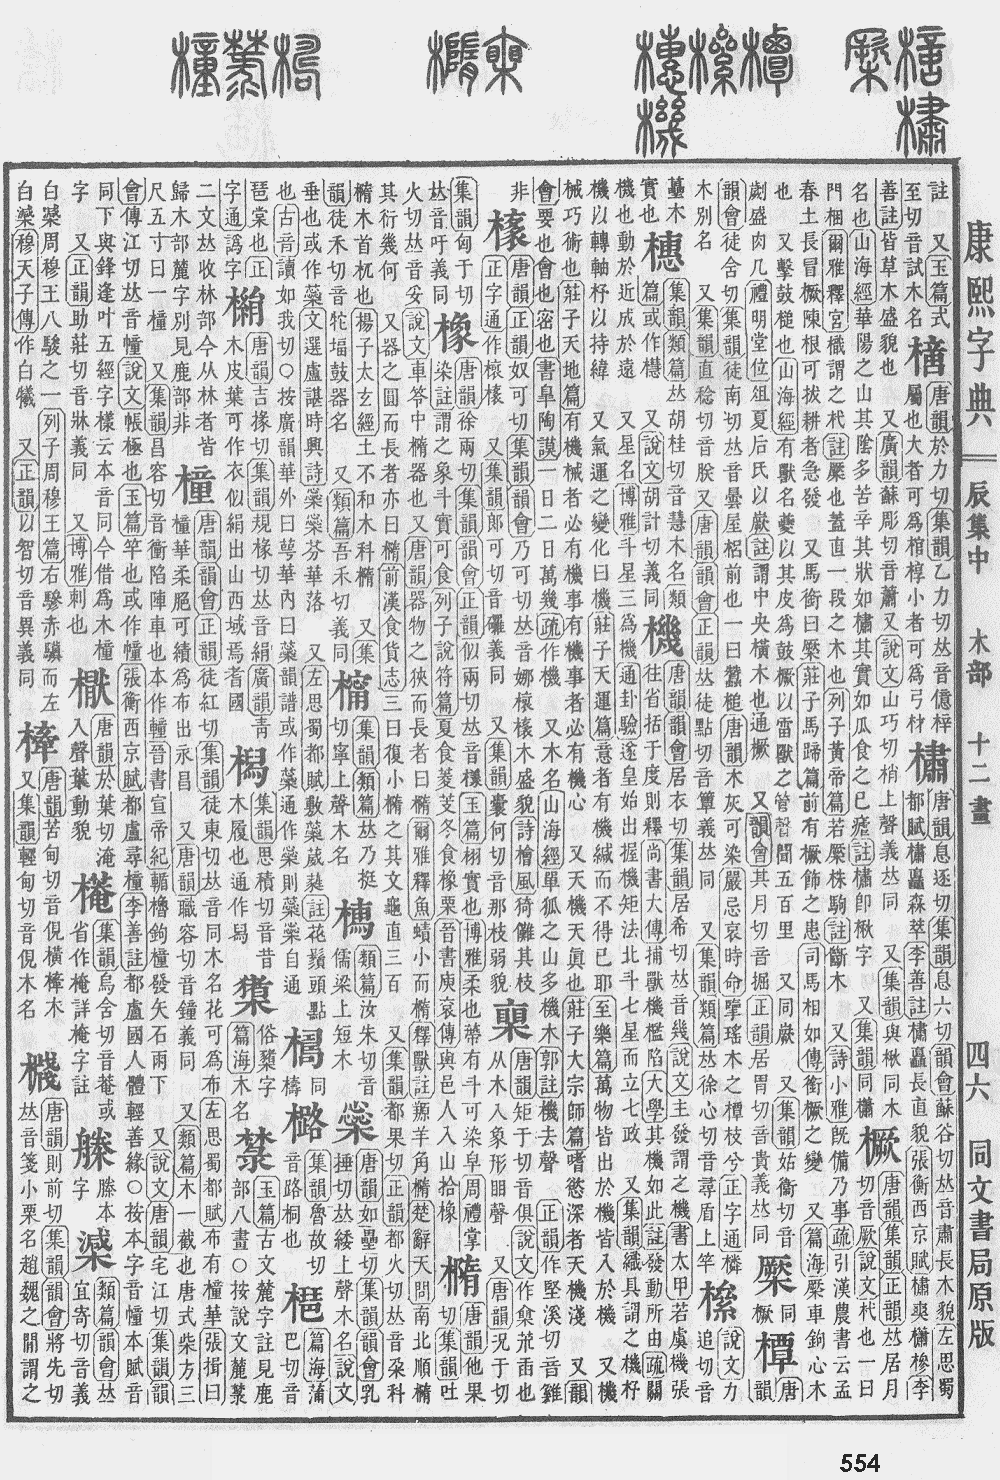 康熙字典 辰集中 木部 十二畫 四六 同文書局原版
註 又玉篇式
至切音試木名
檍
唐韻於力切集韻乙力切𠀤音億梓
屬也大者可爲棺椁小者可爲弓材
橚
唐韻息逐切集韻息六切韻會蘇谷切𠀤音肅長木貌左思蜀
都賦橚矗森萃李善註橚矗長直貌張衡西京賦橚爽櫹槮李
善註皆草木盛貌也 又廣韻蘇彫切音蕭又說文山巧切梢上聲義𠀤同 又集韻與楸同木
名也山海經華陽之山其陰多苦辛其狀如橚其實如瓜食之已瘧註橚卽楸字 又集韻同櫹
橛
唐韻集韻正韻𠀤居月
切音厥說文杙也一曰
門梱爾雅釋宮樴謂之杙註橜也蓋直一段之木也列子黃帝篇若橜株駒註斷木 又詩小雅旣備乃事疏引漢農書云孟
春土長冒橛陳根可拔耕者急發 又馬銜曰橜莊子馬蹄篇前有橛飾之患司馬相如傳銜橛之變 又篇海橜車鉤心木
也 又擊鼓槌也山海經有獸名夔以其皮爲鼓橛以雷獸之骨聲聞五百里 又同嶡 又集韻姑衞切音
劌盛肉几禮明堂位俎夏后氏以嶡註謂中央橫木也通橛 又韻會其月切音掘正韻居胃切音貴義𠀤同
橜
同
橛
橝
唐
韻
韻會徒含切集韻徒南切𠀤音曇屋梠前也一曰蠶槌唐韻木灰可染嚴忌哀時命擥瑤木之橝枝兮正字通檁
木別名 又集韻直稔切音朕又唐韻韻會正韻𠀤徒點切音簟義𠀤同 又集韻類篇𠀤徐心切音尋盾上竿
說文力
追切音
蔂木
實也
橞
集韻類篇𠀤胡桂切音慧木名類
篇或作櫘 又說文胡計切義同
機
唐韻韻會居衣切集韻居希切𠀤音幾說文主發謂之機書太甲若虞機張
往省括于度則釋尚書大傳捕獸機檻陷大學其機如此註發動所由疏關
機也動於近成於遠 又星名博雅斗星三爲機通卦驗遂皇始出握機矩法北斗七星而立七政 又集韻織具謂之機杼
機以轉軸杼以持緯 又氣運之變化曰機莊子天運篇意者有機緘而不得已耶至樂篇萬物皆出於機皆入於機 又機
械巧術也莊子天地篇有機械者必有機事有機事者必有機心 又天機天眞也莊子大宗師篇嗜慾深者天機淺 又韻
會要也會也密也書臯陶謨一日二日萬幾疏作機 又木名山海經單狐之山多機木郭註機去聲 正韻作堅溪切音雞
非
橠
唐韻正韻奴可切集韻韻會乃可切𠀤音娜榱橠木盛貌詩檜風猗儺其枝
正字通作榱橠 又集韻郎可切 義同 又集韻囊何切音那枝弱貌
唐韻矩于切音俱說文作
从木入象形䀠聲 又唐韻況于切
集韻匈于切
𠀤音吁義同
橡
唐韻徐兩切集韻韻會正韻似兩切𠀤音樣玉篇栩實也博雅柔也蒂有斗可染皁周禮掌
染註謂之象斗實可食列子說符篇夏食菱芰冬食橡栗晉書庾袞傳與邑人入山拾橡
橢
唐韻他果
切集韻吐
火切𠀤音妥說文車笭中橢器也又唐韻器物之狹而長者曰橢爾雅釋魚蟦小而橢釋獸註羱羊角橢楚辭天問南北順橢
其衍幾何 又器之圓而長者亦曰橢前漢食貨志三曰復小橢之其文龜直三百 又集韻都果切正韻都火切𠀤音朶科
橢木首杌也揚子太玄經土不和木科橢 又集
韻徒禾切音牠堛鼓器名 又類篇吾禾切義同
橣
集韻類篇𠀤乃挺
切寧上聲木名
類篇汝朱切音
儒梁上短木
橤
唐韻如壘切集韻韻會乳
捶切𠀤緌上聲木名說文
垂也或作蘂文選盧諶時興詩橤橤芬華落 又左思蜀都賦敷蘂葳蕤註花鬚頭點
也古音讀如我切○按廣韻華外曰萼華內曰蘂韻譜或作蘂通作橤則蘂橤自通
同
檮
集韻魯故切
音路桐也
篇海蒲
巴切音
琶棠也正
字通譌字
唐韻吉掾切集韻規椽切𠀤音絹廣韻靑
木皮葉可作衣似絹出山西域焉耆國
集韻思積切音昔
木履也通作舄
俗櫫字
篇海木名
玉篇古文麓字註見鹿
部八畫○按說文麓
二文𠀤收林部今从林者皆
歸木部麓字別見鹿部非
橦
唐韻韻會正韻徒紅切集韻徒東切𠀤音同木名花可爲布左思蜀都賦布有橦華張揖曰
橦華柔脆可績爲布出永昌 又唐韻職容切音鐘義同 又類篇木一截也唐式柴方三
尺五寸曰一橦 又集韻昌容切音衝陷陣車也本作䡴晉書宣帝紀輣櫓鉤橦發矢石雨下 又說文唐韻宅江切集韻韻
會傳江切𠀤音幢說文帳極也玉篇竿也或作幢張衡西京賦都盧尋橦李善註都盧國人體輕善緣○按本字音幢本賦音
同下與鋒逢叶五經字樣云本音同今借爲木橦
字 又正韻助莊切音牀義同 又博雅刺也
唐韻於葉切淹
入聲葉動貌
集韻烏含切音菴或
省作 詳 字註
榺本
字
類篇韻會𠀤
宜寄切音義
白 周穆王八駿之一列子周穆王篇右驂赤驥而左
白 穆天子傳作白犠 又正韻以智切音異義同
唐韻苦甸切音俔橫榫木
又集韻輕甸切音俔木名
唐韻則前切集韻會將先切
𠀤音箋小栗名趙魏之閒謂之
554